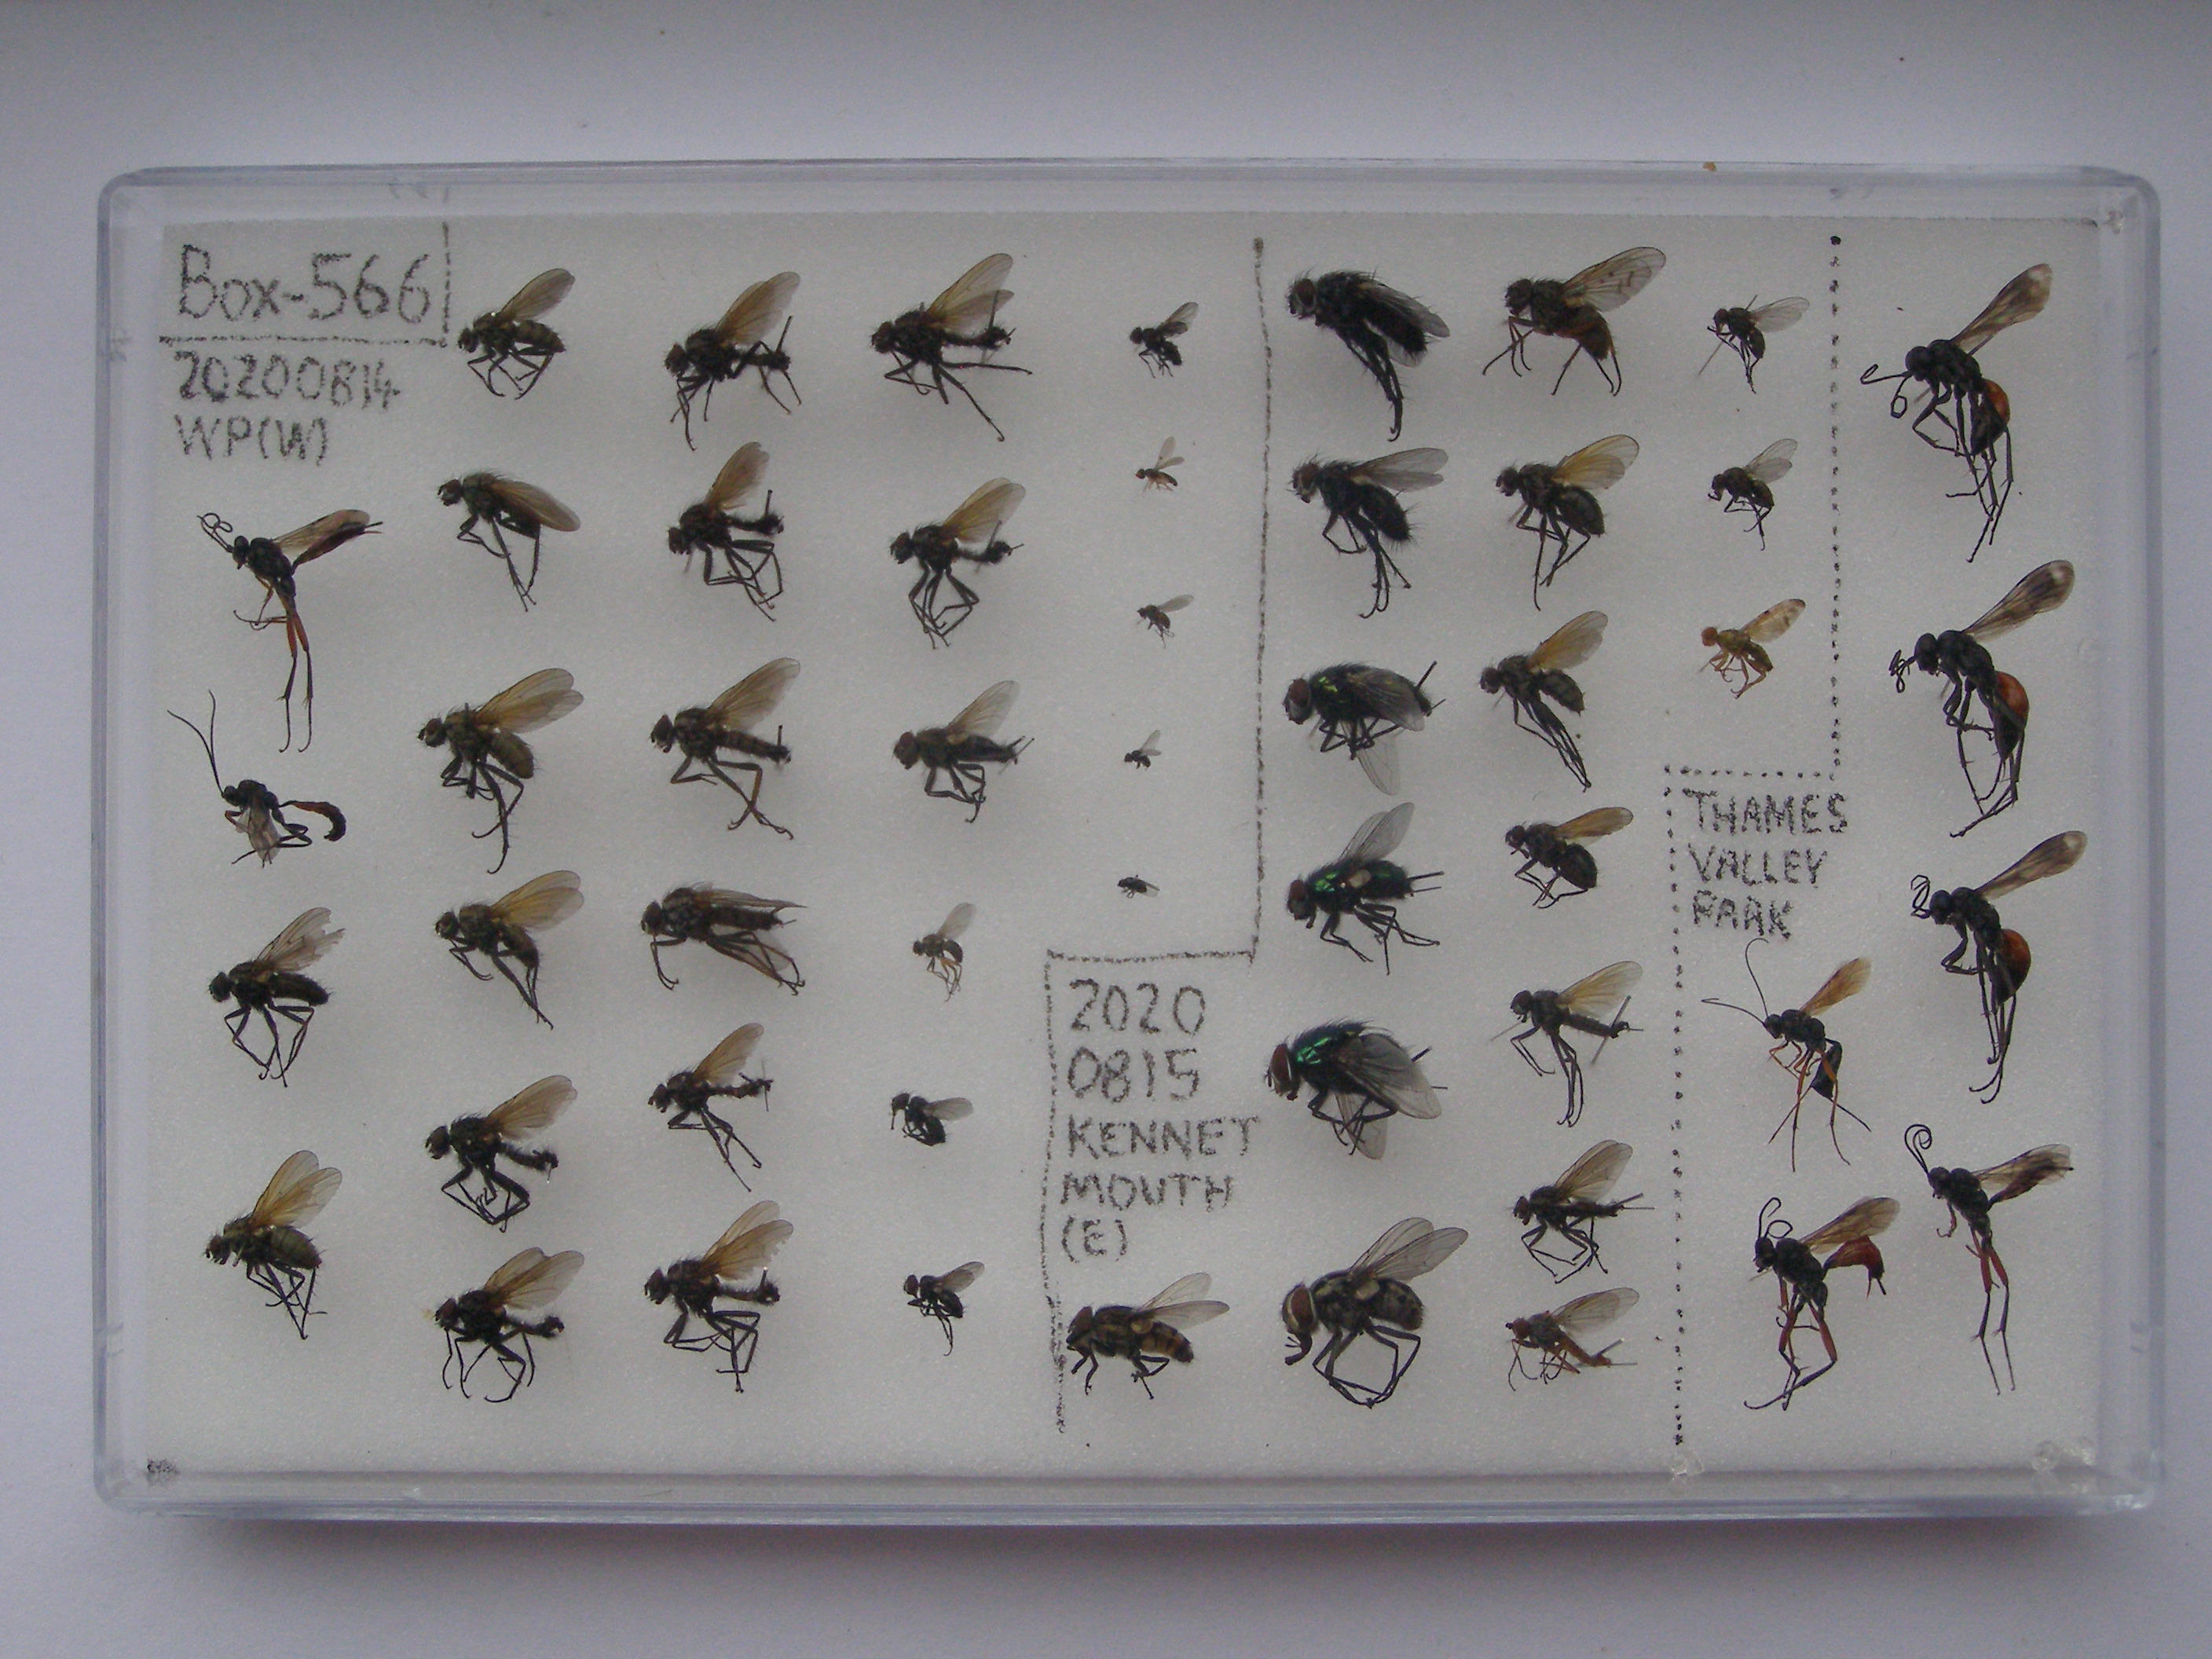 Box-566
20200814
WP(W)
2020
0815
KENNET
MOUTH
(E)
THAMES
VALLEY
PARK